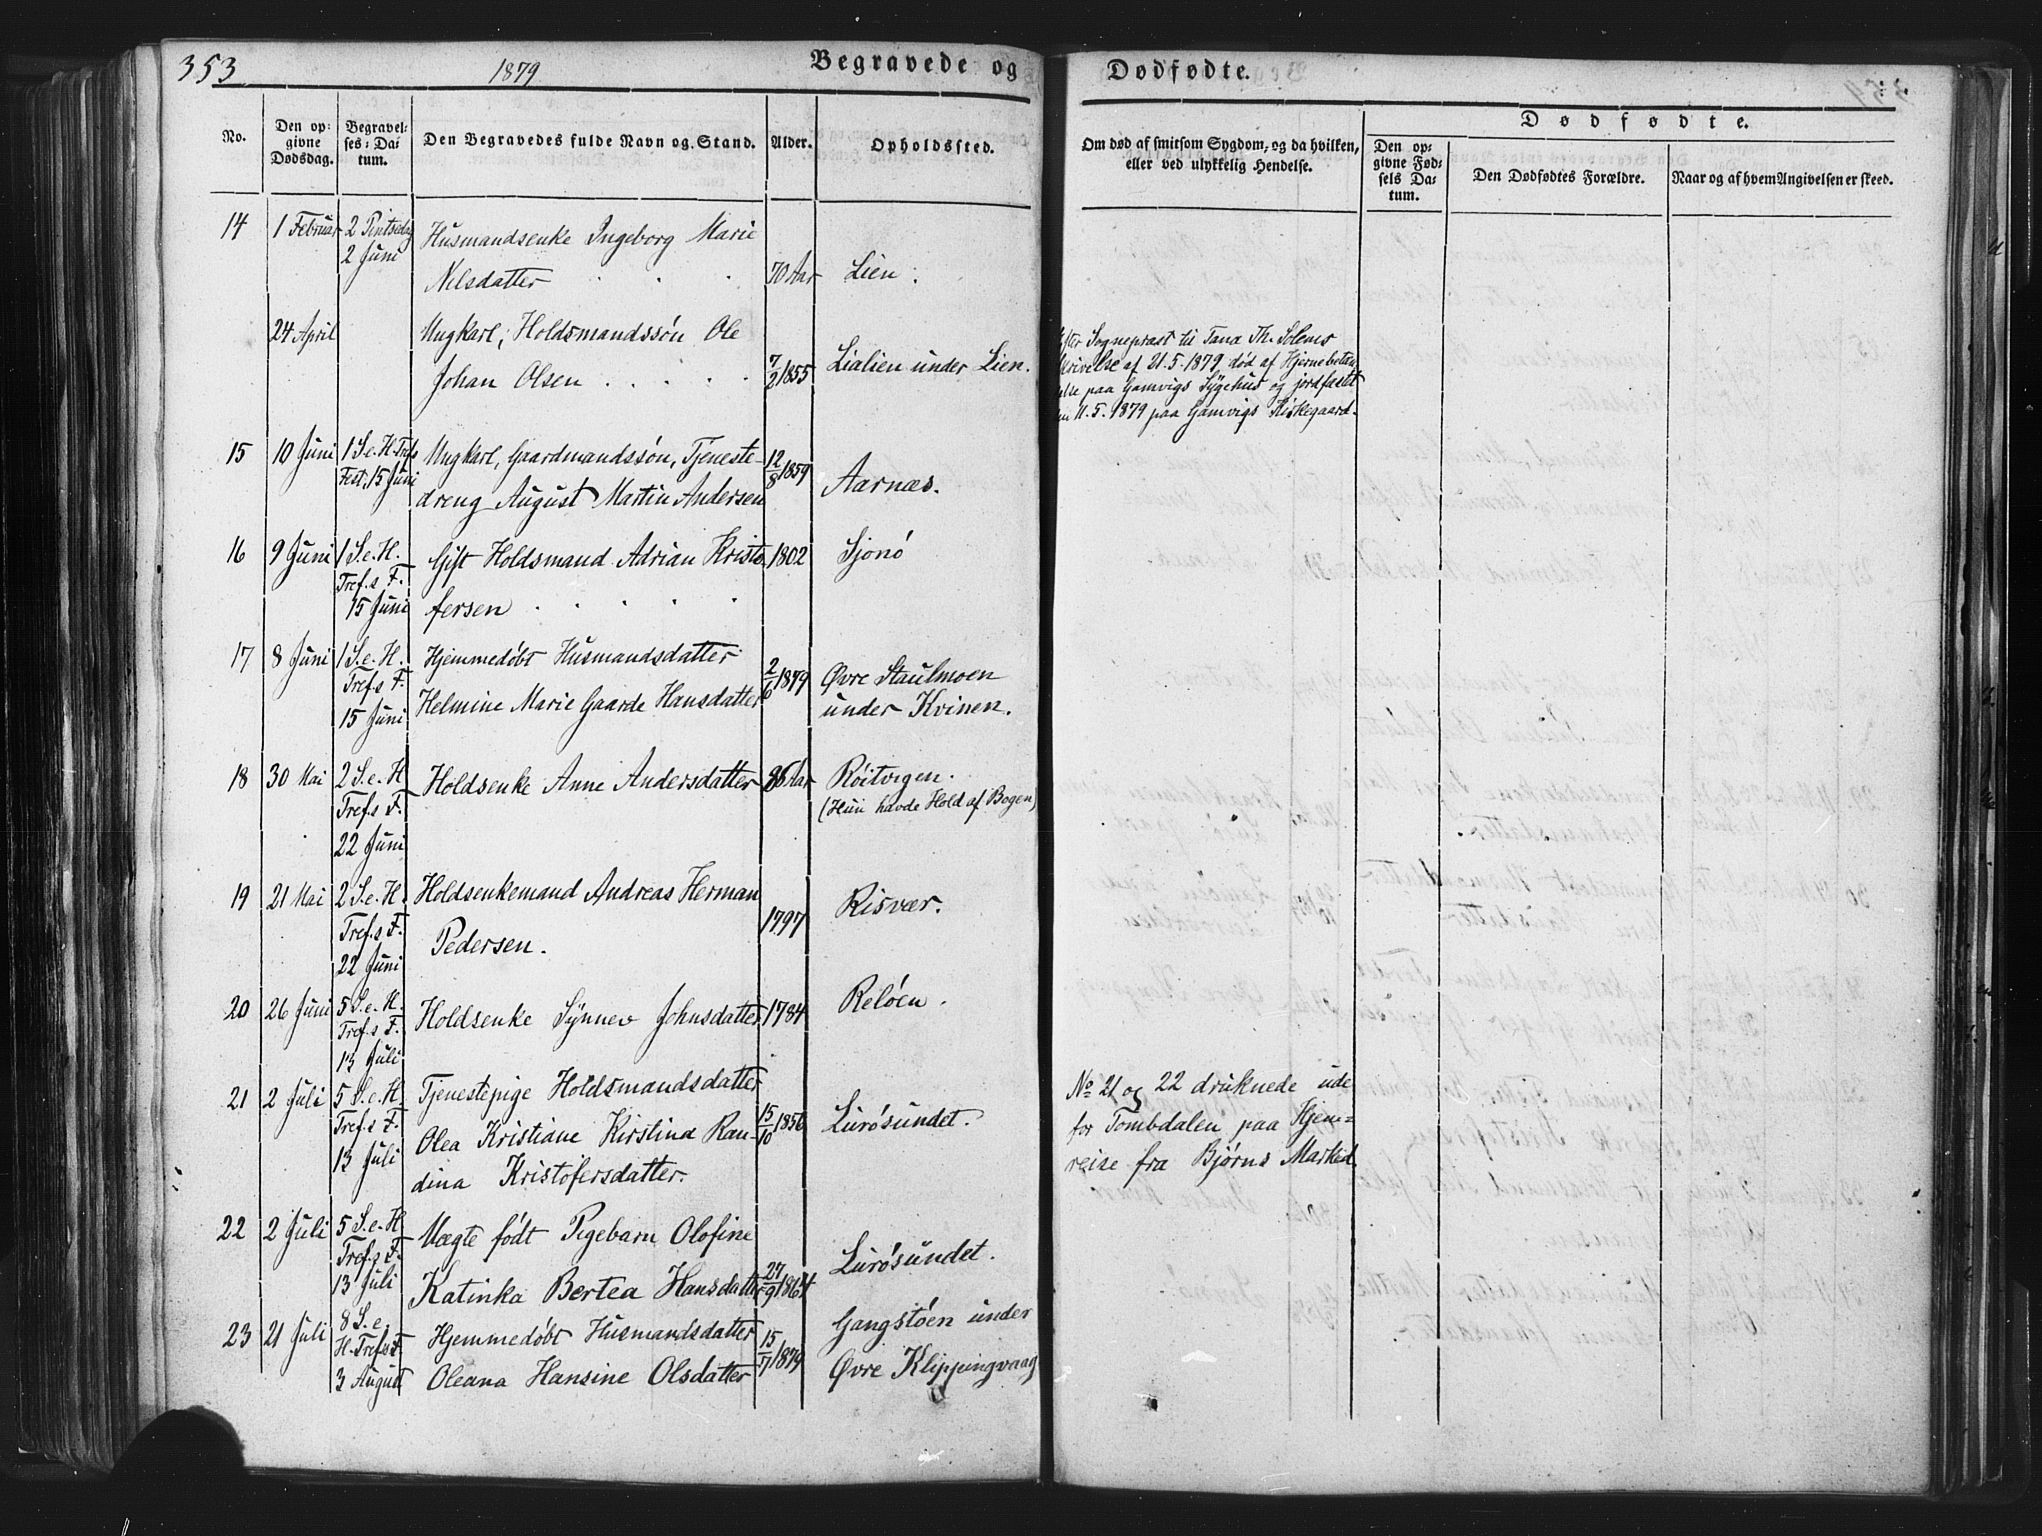 353
1879
Begravede og Dødfødte.
No.
Den op-
givne
Dødsdag.
Begravel-
ses-Da-
tum.
Den Begravedes fulde Navn og Stand.
Alder.
Opholdssted.
Om død af smitsom Sygdom, og da hvilken,
eller ved ulykkelig Hendelse.
Dødfødte.
Den op-
givne Fød-
sels Da-
tum.
Den Dødfødtes Forældre.
Naar og af hvem Angivelsen er skeed.
14 1 Februar 2 Pintsedag
2 Juni
Husmandsenke Ingeborg Marie
Nelsdatter 70 Aar Lien.
24 April Ungkarl, Holdsmandssøn Ole
Johan Olsen 7/2 1855 Lialien under Lien.
Efter Sognepræst til Tana Th. Solems
Skrivelse af 21.5.1879 død af Hjernebetæn
delse paa Gamvigs Sygehus og jordfæstet
den 11.5.1879 paa Gamvigs Kirkegaard.
15 10 Juni 1 S.e.H.Tref.s
Fest. 15 Juni
Ungkarl, Gaardmandssøn, Tjeneste-
dreng August Martin Andersen 12/8 1859 Aarnæs.
16 9 Juni 1 S.e.H.
Tref.s F.
15 Juni
Gift Holdsmand Adrian Kristo
fersen 1802 Sjonø
17 8 Juni 1 S.e.H.
Tref.s F.
15 Juni
Hjemmedøbt Husmandsdatter
Helmine Marie Gaarde Hansdatter 2/6 1879 Øvre Staulmoen
under Kvinen.
18 30 Mai 2 S.e.H
Tref.s F.
22 Juni
Holdsenke Anne Andersdatter 86 Aar Røitvigen.
(Hun havde Hold af Bogen)
19 21 Mai 2 S.e.H.
Tref.s F.
22 Juni
Holdsenkemand Andreas Herman
Pedersen. 1797 Risvær.
20 26 Juni 5 S.e.H.
Tref.s F.
13 Juli
Holdsenke Synnev Johnsdatter 1784 Reløen.
21 2 Juli 5 S.e.H
Tref.s F.
13 Juli
Tjenestepige Holdsmandsdatter
Olea Kristiane Kirstina Ran-
dina Kristofersdatter. 15/10 1856 Lurøsundet.
No 21 og 22 druknede ude
for Tombdalen paa Hjem-
reise fra Bjørns Marked
22 2 Juli 5 S.e.H
Tref.s F.
13 Juli
Uægte født Pigebarn Olofine
Katinka Bertea Hansdatter 27/9 1864 Lurøsundet.
23 21 Juli 8 S.e.
H.Tref.s F.
3 August
Hjemmedøbt Husmandsdatter
Oleana Hansine Olsdatter 15/7 1879 Gangstøen under
Øvre Klippingvaag